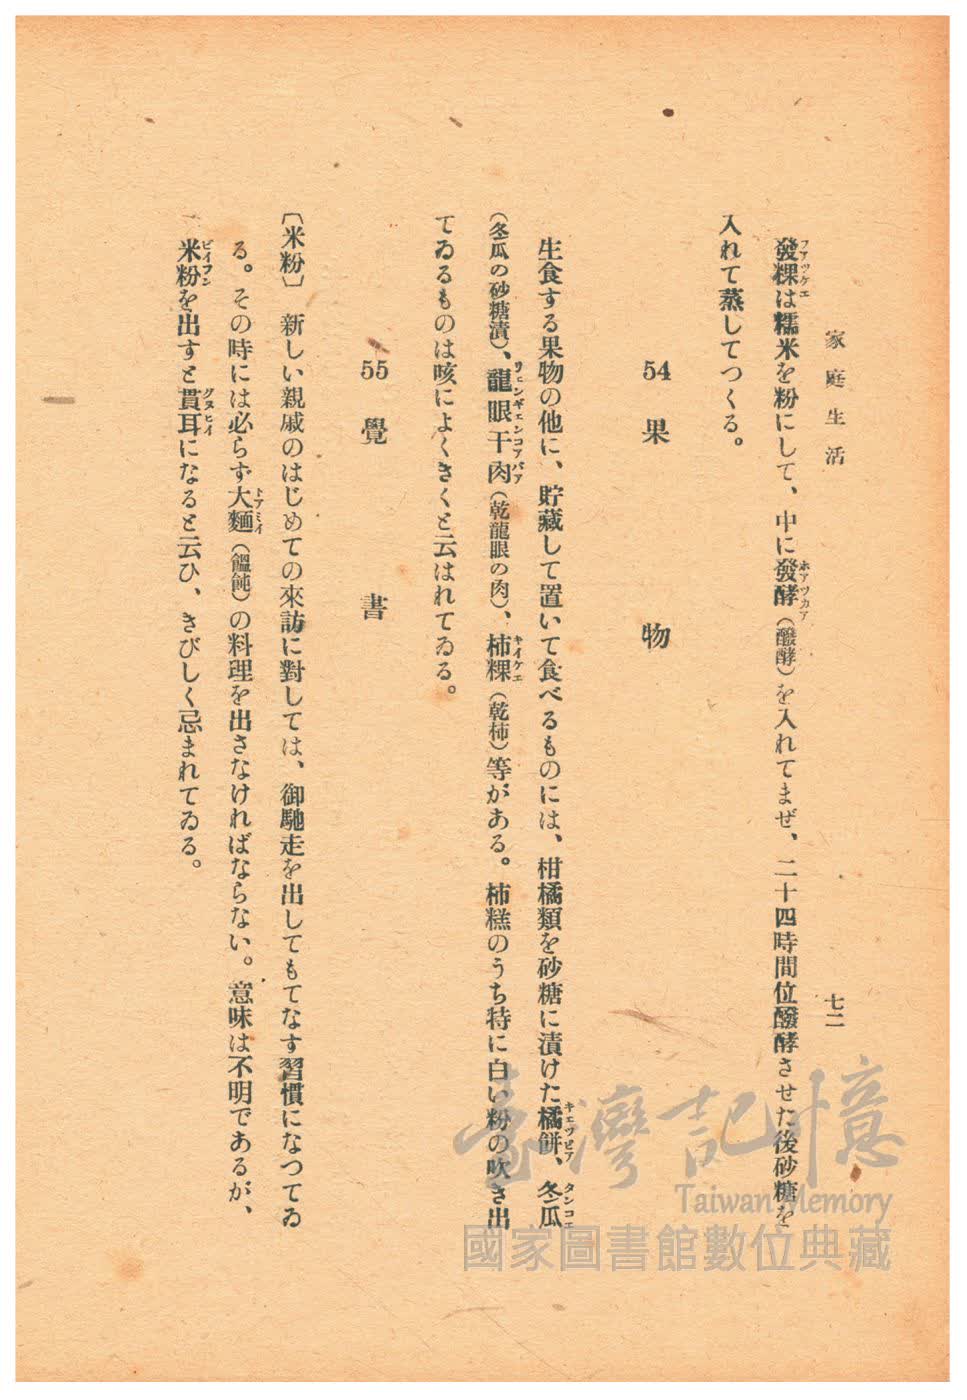 家庭生活
七二
發粿は糯米を粉にして、中に發酵（醱酵）を入れてまぜ、二十四時間位醱酵させた後砂糖を
入れて蒸してつくる。
54 果物
生食する果物の他に、貯藏して置いて食べるものには、柑橘類を砂糖に漬けた橘餅、冬瓜
（冬瓜の砂糖漬）、龍眼干肉（乾龍眼の肉）、柿粿（乾柿）等がある。柿糕のうち特に白い粉の吹き出
てゐるものは咳によくきくと云はれてゐる。
55 覺書
〔米粉〕 新しい親戚のはじめての來訪に對しては、御馳走を出してもてなす習慣になつてゐ
る。その時には必らず大麵（饂飩）の料理を出さなければならない。意味は不明であるが、
米粉を出すと貫耳になると云ひ、きびしく忌まれてゐる。
臺灣記憶
Taiwan Memory
國家圖書館數位典藏